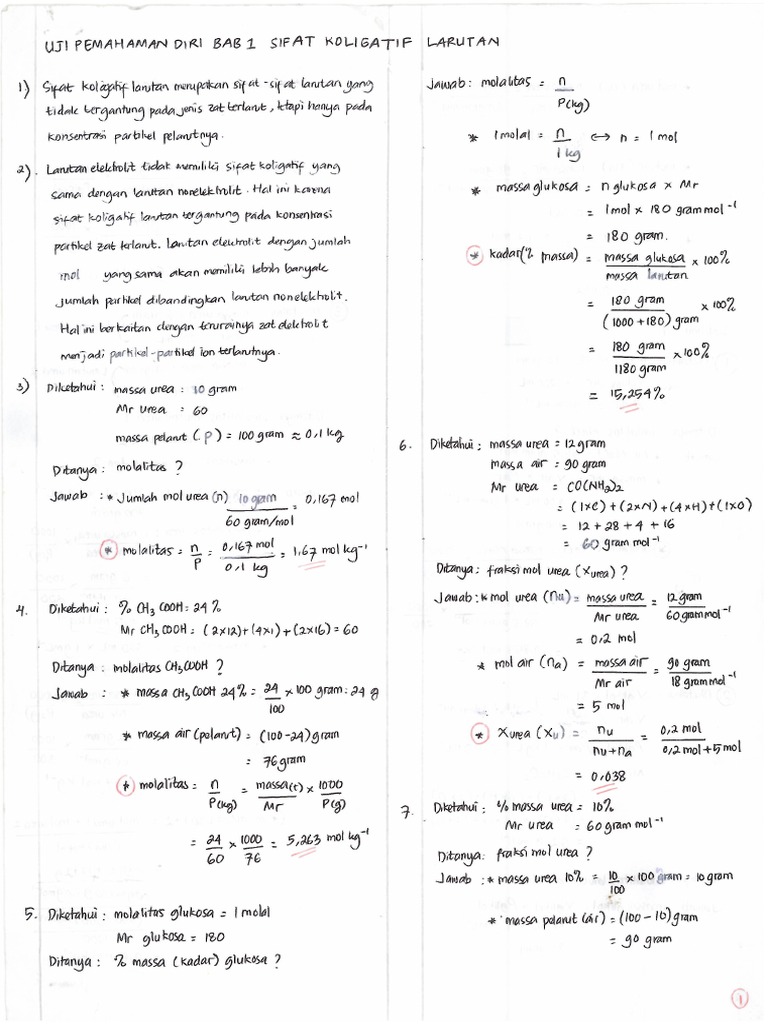 UJI PEMAHAMAN DIRI BAB 1 SIFAT KOLIGATIF LARUTAN
1) Sifat koligatif larutan merupakan sifat-sifat larutan yang
tidak tergantung pada jenis zat terlarut, tetapi hanya pada
konsentrasi partikel pelarutnya.
2). Larutan elektrolit tidak memiliki sifat koligatif yang
sama dengan larutan nonelektrolit. Hal ini karena
sifat koligatif larutan tergantung pada konsentrasi
partikel zat terlarut. Larutan elektrolit dengan jumlah
mol yang sama akan memiliki lebih banyak
jumlah partikel dibandingkan larutan nonelektrolit.
Hal ini berkaitan dengan terurainya zat elektrolit
menjadi partikel-partikel ion terlarutnya.
3) Diketahui : massa urea : 10 gram
Mr urea : 60
massa pelarut (P) = 100 gram ≈ 0,1 kg
Ditanya : molalitas ?
Jawab : * Jumlah mol urea (n) 10 gram / 60 gram/mol = 0,167 mol
* molalitas = n/P = 0,167 mol / 0,1 kg = 1,67 mol kg⁻¹
4. Diketahui : % CH₃COOH = 24 %
Mr CH₃COOH = (2x12)+(4x1)+(2x16) = 60
Ditanya : molalitas CH₃COOH ?
Jawab : * massa CH₃COOH 24% = 24/100 x 100 gram = 24 g
* massa air (pelarut) = (100-24) gram
= 76 gram
* molalitas = n/P(kg) = massa(t)/Mr x 1000/P(g)
= 24/60 x 1000/76 = 5,263 mol kg⁻¹
5. Diketahui : molalitas glukosa = 1 molal
Mr glukosa = 180
Ditanya : % massa (kadar) glukosa ?
Jawab : molalitas = n/P(kg)
* 1 molal = n/1 kg ↔ n = 1 mol
* massa glukosa = n glukosa x Mr
= 1 mol x 180 gram mol⁻¹
= 180 gram.
* kadar (% massa) = massa glukosa / massa larutan x 100%
= 180 gram / (1000 + 180) gram x 100%
= 180 gram / 1180 gram x 100%
= 15,254%
6. Diketahui : massa urea = 12 gram
massa air = 90 gram
Mr urea = CO(NH₂)₂
= (1xC) + (2xN) + (4xH) + (1xO)
= 12 + 28 + 4 + 16
= 60 gram mol⁻¹
Ditanya : fraksi mol urea (Xurea) ?
Jawab : * mol urea (nu) = massa urea / Mr urea = 12 gram / 60 gram mol⁻¹
= 0,2 mol
* mol air (na) = massa air / Mr air = 90 gram / 18 gram mol⁻¹
= 5 mol
* Xurea (Xu) = nu / nu+na = 0,2 mol / 0,2 mol + 5 mol
= 0,038
7. Diketahui : % massa urea = 10%
Mr urea = 60 gram mol⁻¹
Ditanya : fraksi mol urea ?
Jawab : * massa urea 10% = 10/100 x 100 gram = 10 gram
* massa pelarut (air) = (100 - 10) gram
= 90 gram
1